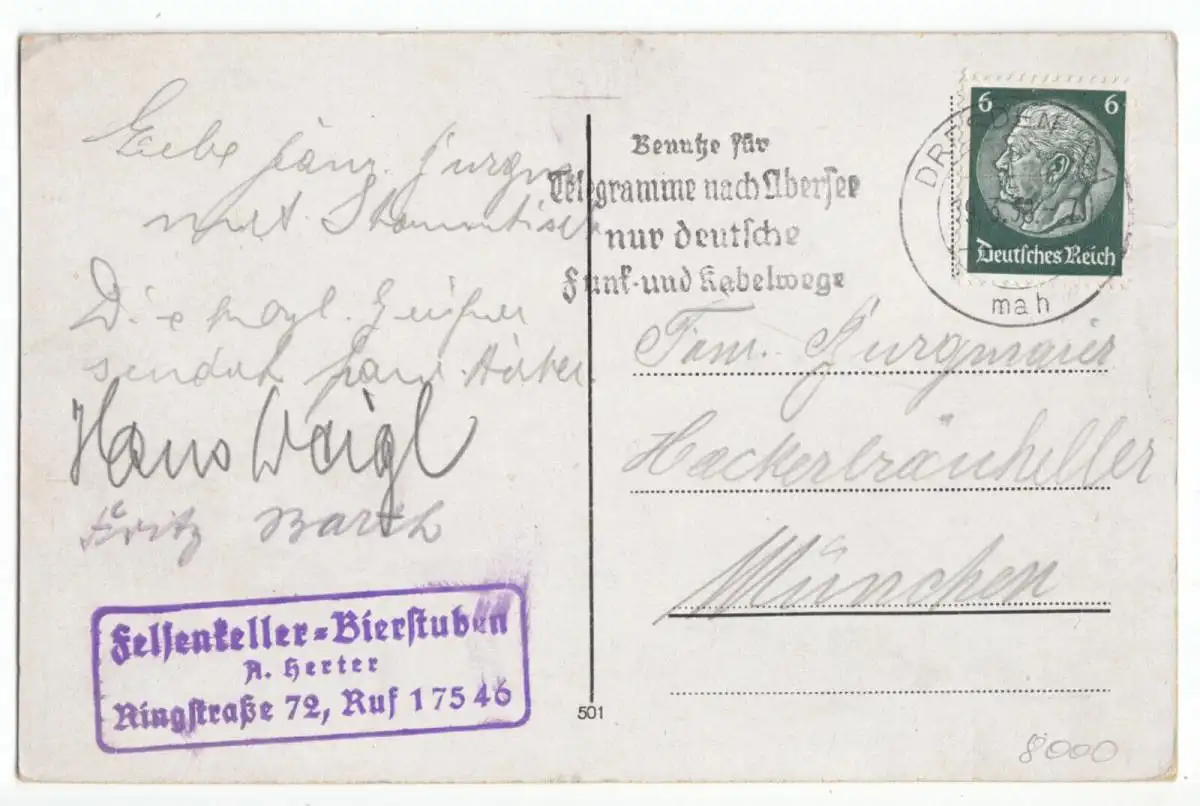 Liebe Fam. Jurgmaier
mit Stammtisch
Die
sendet Fam.
Hans Weigl
Fritz Barth
Felsenkeller=Bierstuben
A. Herter
Ringstraße 72, Ruf 17546
Benutze für
Telegramme nach Übersee
nur deutsche
Funk- und Kabelwege
6 6
Deutsches Reich
DRESDEN
38
mah
Fam. Jurgmaier
Hackerbräukeller
München
501
8000